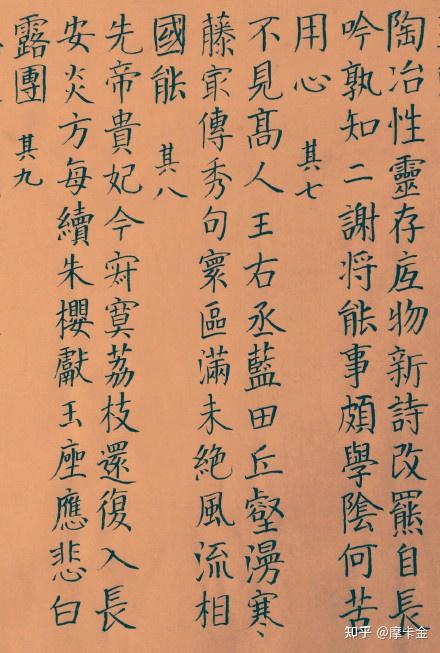 陶冶性靈存底物新詩改罷自長
吟孰知二謝将能事頗學陰何苦
用心 其七
不見髙人王右丞藍田丘壑漫寒
藤家傳秀句寰區滿未絶風流相
國能 其八
先帝貴妃今寂寞荔枝還復入長
安炎方每續朱櫻獻玉座應悲白
露團 其九
知乎 @摩卡金